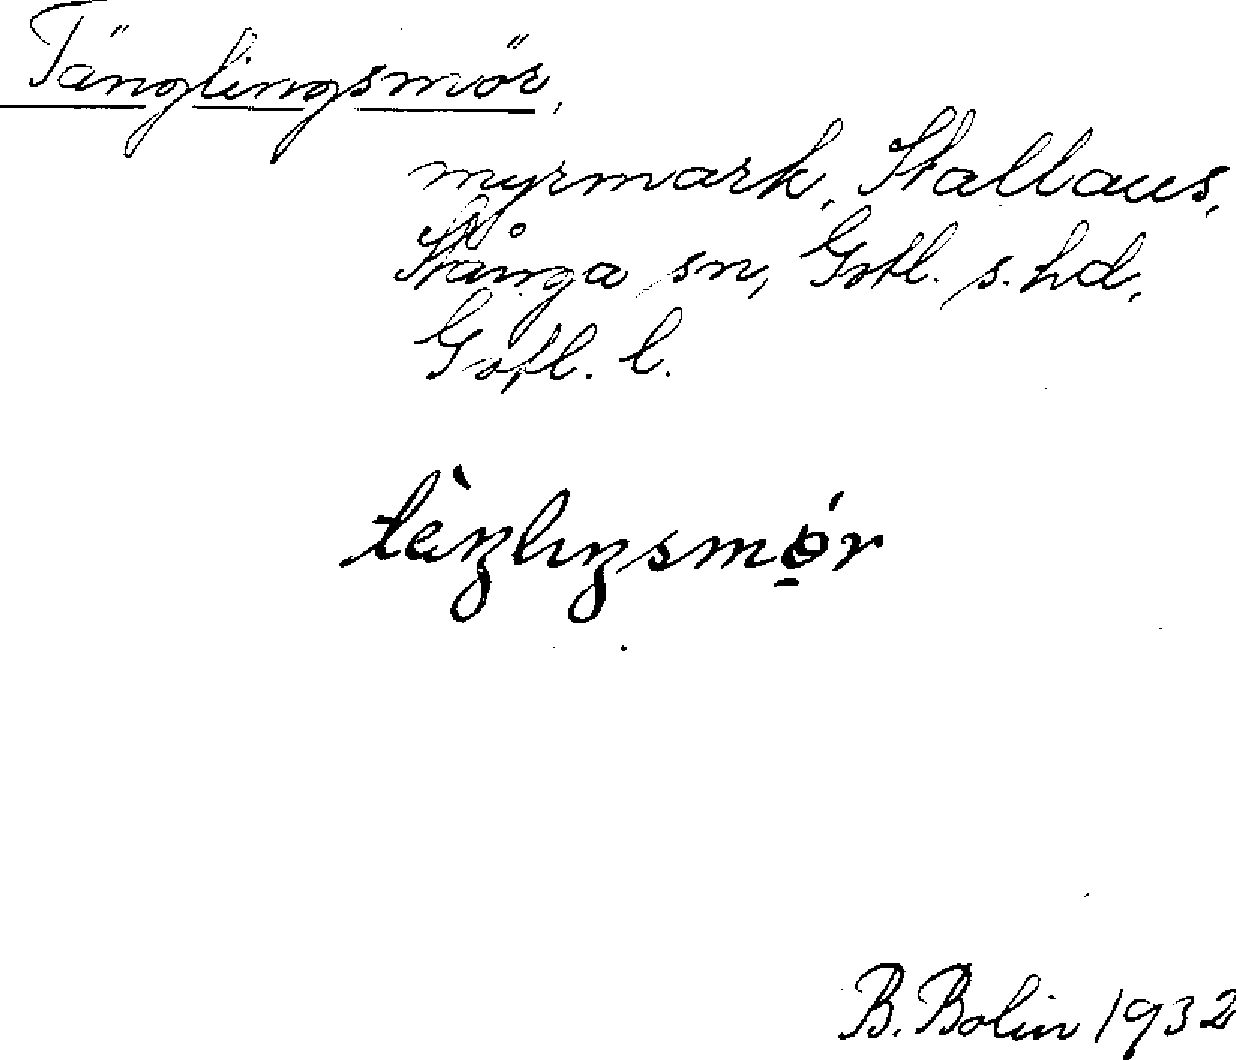 Tänglingsmör,
myrmark, Stallaus,
Stånga sn, Gotl. s. hd,
Gotl. l.
B. Bolin 1932